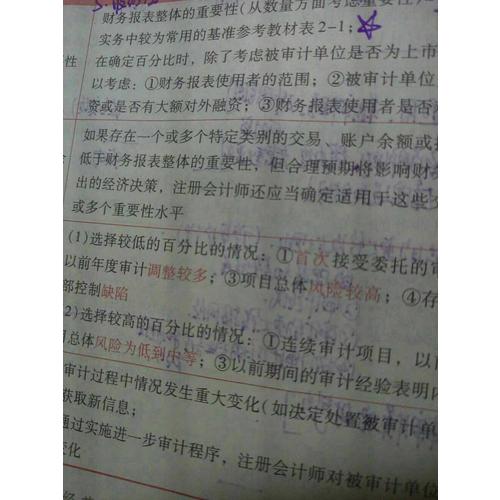 财务报表整体的重要性(从数量方面考虑重要性)
实务中较为常用的基准参考教材表2-1;
性 在确定百分比时,除了考虑被审计单位是否为上市
以考虑:①财务报表使用者的范围;②被审计单位
资或是否有大额对外融资;③财务报表使用者是否
如果存在一个或多个特定类别的交易、账户余额或
低于财务报表整体的重要性,但合理预期将影响财
出的经济决策,注册会计师还应当确定适用于这些交
或多个重要性水平
(1)选择较低的百分比的情况:①首次接受委托的审
以前年度审计调整较多;③项目总体风险较高;④存
部控制缺陷
2)选择较高的百分比的情况:①连续审计项目,以
目总体风险为低到中等;③以前期间的审计经验表明内
审计过程中情况发生重大变化(如决定处置被审计单
获取新信息;
通过实施进一步审计程序,注册会计师对被审计单位
变化